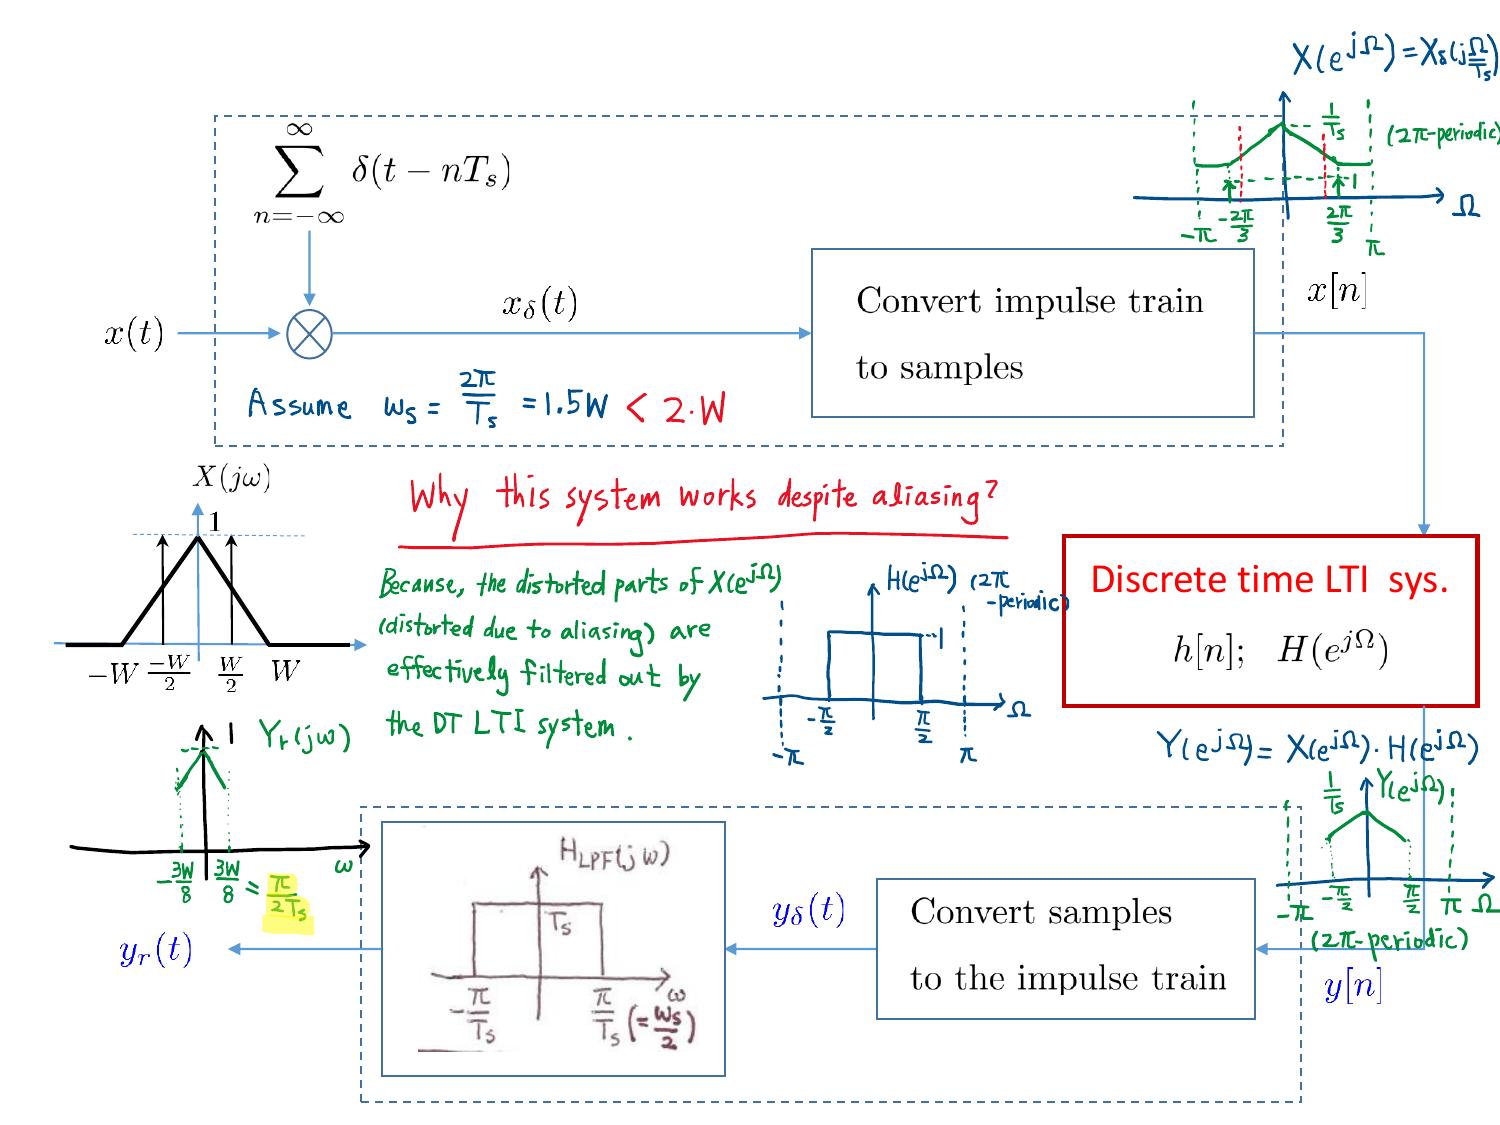 X(e^{jΩ}) = X_δ(j Ω/T_s)
1/T_s
(2π-periodic)
1
Ω
-π -2π/3 2π/3 π
∑_{n=-∞}^{∞} δ(t − nT_s)
x(t)
x_δ(t)
Convert impulse train
to samples
x[n]
Assume w_s = 2π/T_s = 1.5W < 2·W
X(jω)
1
-W -W/2 W/2 W
Why this system works despite aliasing?
Because, the distorted parts of X(e^{jΩ})
(distorted due to aliasing) are
effectively filtered out by
the DT LTI system.
H(e^{jΩ}) (2π
-periodic)
1
Ω
-π -π/2 π/2 π
Discrete time LTI sys.
h[n]; H(e^{jΩ})
Y(e^{jΩ}) = X(e^{jΩ})·H(e^{jΩ})
1/T_s
Y(e^{jΩ})
-π -π/2 π/2 π Ω
(2π-periodic)
y[n]
Convert samples
to the impulse train
y_δ(t)
H_{LPF}(jω)
T_s
ω
-π/T_s π/T_s (= w_s/2)
Y_r(jω)
1
ω
-3W/8 3W/8 = π/2T_s
y_r(t)